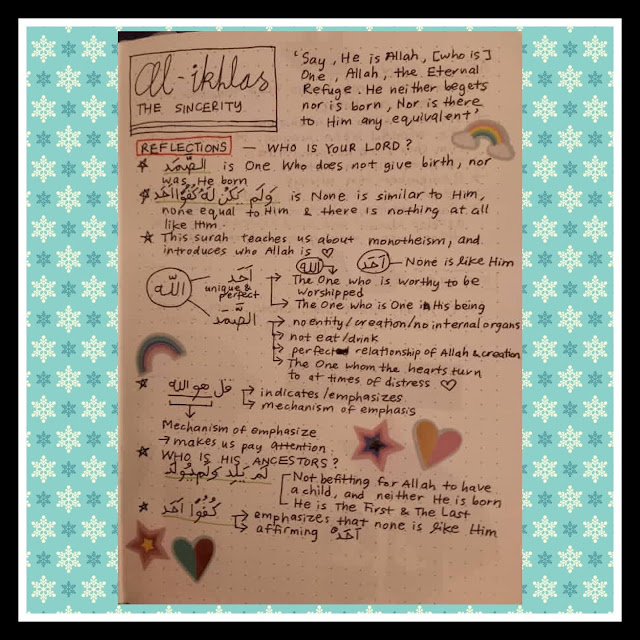 al-ikhlas
THE SINCERITY
'Say, He is Allah, [who is]
One, Allah, the Eternal
Refuge. He neither begets
nor is born, Nor is there
to Him any equivalent'
REFLECTIONS — WHO IS YOUR LORD?
★ الصَّمَد is One Who does not give birth, nor
was He born
★ وَلَم يَكُن لَّهُ كُفُوًا أَحَد is None is similar to Him,
none equal to Him & there is nothing at all
like Him.
★ This surah teaches us about monotheism, and
introduces who Allah is ♡
الله أَحَد — None is like Him
الله
أَحَد
unique &
perfect
→ The One who is worthy to be
worshipped
→ The One who is One in His being
الصَّمَد
→ no entity/creation/no internal organs
→ not eat/drink
→ perfect relationship of Allah & creation
→ The One whom the hearts turn
to at times of distress ♡
★ قل هو الله → indicates/emphasizes
→ mechanism of emphasis
Mechanism of emphasize
→ makes us pay attention
★ WHO IS HIS ANCESTORS?
لَم يَلِد وَلَم يُولَد
Not befitting for Allah to have
a child, and neither He is born
He is The First & The Last
★ كُفُوًا أَحَد → emphasizes that none is like Him
→ affirming أَحَد